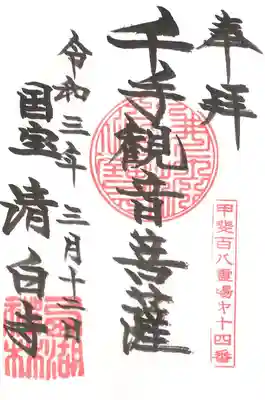 奉拝
甲斐百八霊場才十四番
千手観音菩薩
令和三年三月十二日
国宝清白寺